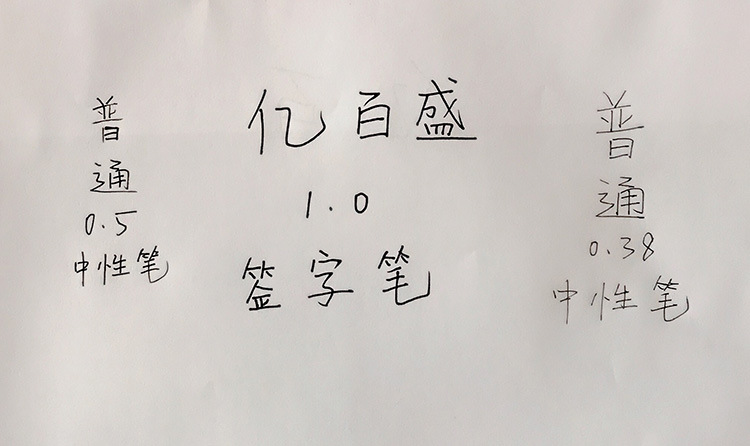 普
通
0.5
中性笔
亿百盛
1.0
签字笔
普
通
0.38
中性笔